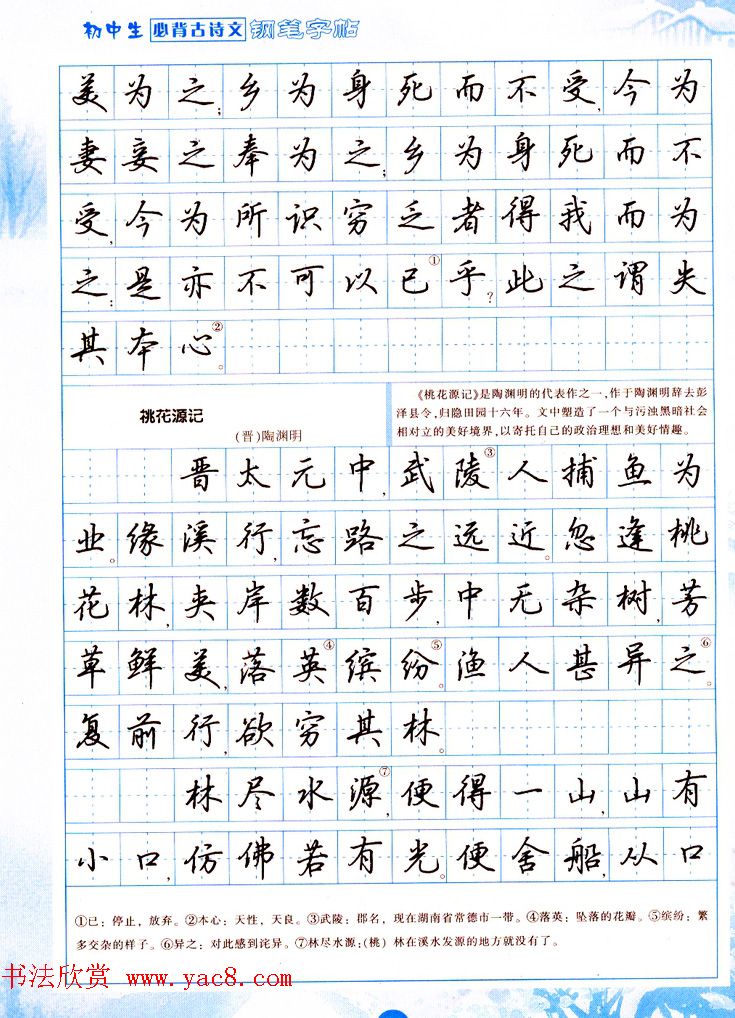 初中生 必背古诗文 钢笔字帖
美为之；乡为身死而不受，今为
妻妾之奉为之；乡为身死而不
受，今为所识穷乏者得我而为
之：是亦不可以已①乎？此之谓失
其本心②。
桃花源记
(晋)陶渊明
《桃花源记》是陶渊明的代表作之一，作于陶渊明辞去彭
泽县令，归隐田园十六年。文中塑造了一个与污浊黑暗社会
相对立的美好境界，以寄托自己的政治理想和美好情趣。
晋太元中，武陵③人捕鱼为
业。缘溪行，忘路之远近。忽逢桃
花林，夹岸数百步，中无杂树，芳
草鲜美，落英④缤纷⑤。渔人甚异之⑥。
复前行，欲穷其林。
林尽水源⑦，便得一山，山有
小口，仿佛若有光。便舍船，从口
①已：停止，放弃。②本心：天性，天良。③武陵：郡名，现在湖南省常德市一带。④落英：坠落的花瓣。⑤缤纷：繁
多交杂的样子。⑥异之：对此感到诧异。⑦林尽水源：(桃)林在溪水发源的地方就没有了。
书法欣赏 www.yac8.com